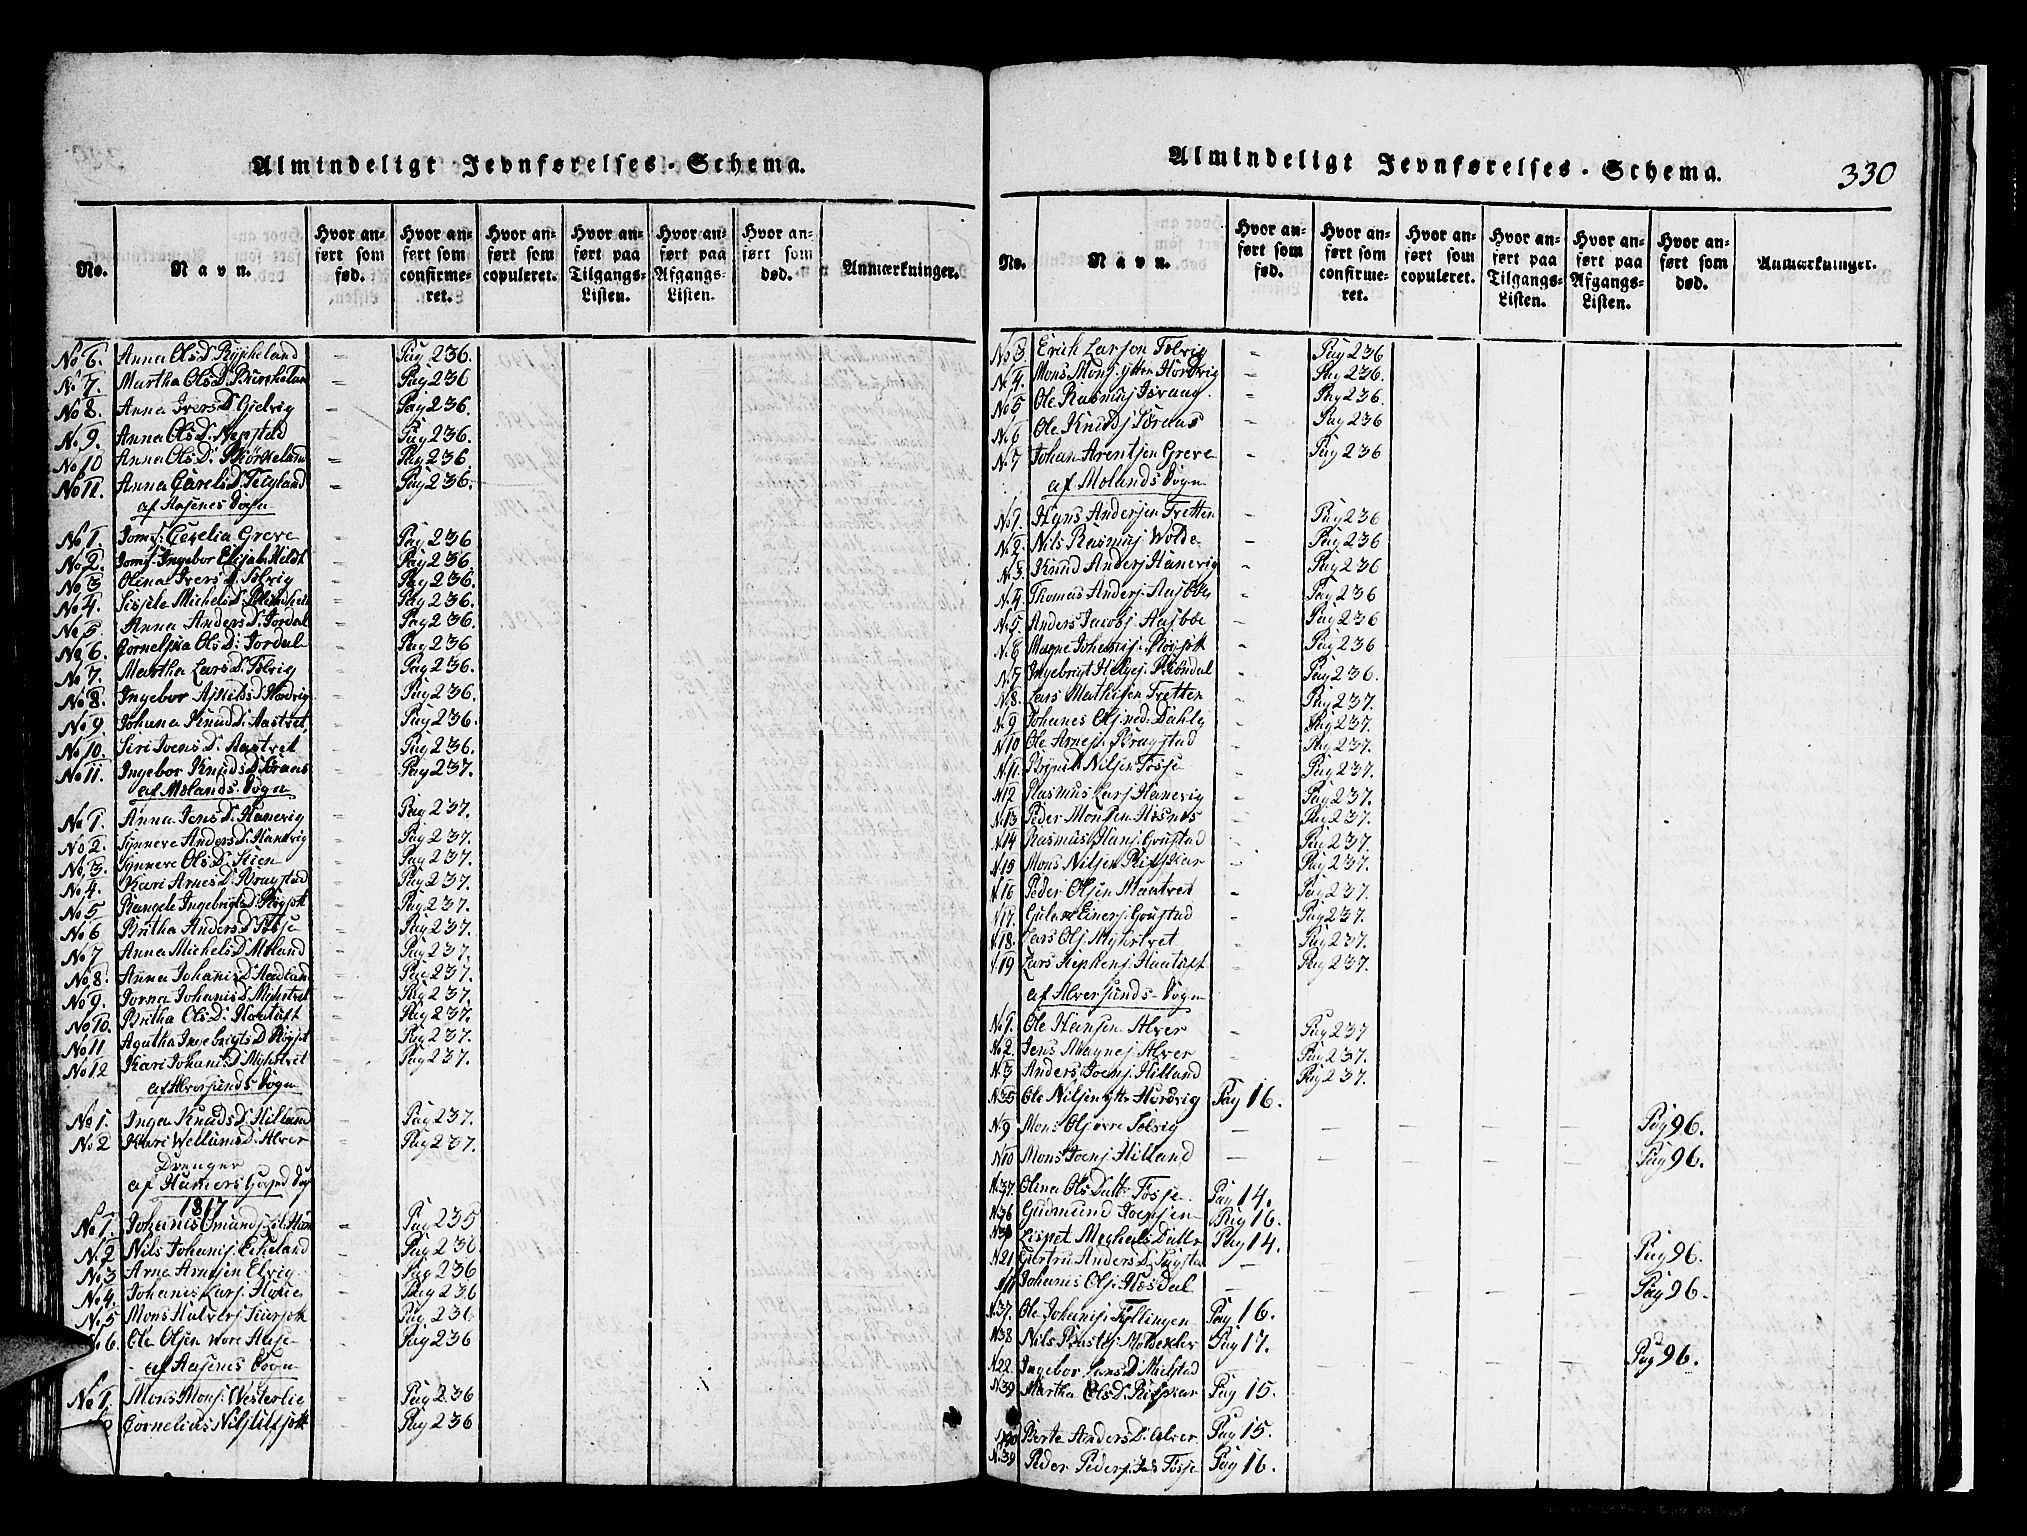 Almindeligt Jevnførelses-Schema.
No.
Navn.
Hvor anført som fød.
Hvor anført som confirmeret.
Hvor anført som copuleret.
Hvor anført paa Tilgangs-Listen.
Hvor anført paa Afgangs-Listen.
Hvor anført som død.
Anmærkninger.
No 6. Anna OlsD Ryskeland - Pag 236.
No 7. Martha OlsD - Pag 236
No 8. Anna IversD Gielvig - Pag 236.
No 9. Anna OlsD. Nepstad - Pag 236.
No 10 Anna OlsD. Børkeland - Pag 236
No 11. Anna CarelsD. - Pag 236.
af Aasenes Sogn
No 1. Jomf: Cecelia Greve - Pag 236
No 2. Jomf. Ingebor Elisab: Heldt Pag 236
No 3 Olina IversD. Solvig Pag 236.
No 4. Sissele MichelsD. Pag 236.
No 5. Anna AndersD. Jordal Pag 236.
No 6. Corneliæ OlsD: Jordal Pag 236
No 7. Martha LarsD. Solvig Pag 236.
No 8. Ingebor HordVig Pag 236.
No 9. Johana KnudD. Aastvet Pag 236.
No 10. Siri JoensD. Aastvet Pag 236.
No 11. Ingebor KnudsD. Pag 237.
af Mølands Sogn
No 1. Anna JensD. Hanevig Pag 237.
No 2. Synneve AndersD. Hanevig Pag 237.
No 3. Synneve OlsD. Stien Pag 237.
No 4. Kari ArnesD. Bragstad Pag 237.
No 5 Rangele Pag 237.
No 6 Britha AndersD. Fosse Pag 237.
No 7 Anna MichelsD. Møland Pag 237.
No 8. Anna JohanisD. Aadland Pag 237.
No 9. Jorna JohanisD. Myhrtvet Pag 237.
No 10. Britha OlsD: Haatuft Pag 237.
No 11 Agatha Pag 237.
No 12 Kari JohanisD. Myhrtvet Pag 237.
af Alversunds Sogn
No 1. Inga KnudsD. Hilland Pag 237.
No 2 Kari WellumsD. Alver Pag 237.
Drenger
af Hamers Hoved Sogn
1817
No 1. Johanis Pag 235
No 2 Nils Johanisj. Echeland Pag 236
No 3 Arne Arnesen Elvig Pag 236
No 4. Johanis Larsj. Pag 236
No 5 Mons Halvorsj. Pag 236
No 6. Ole Olsen Pag 236
af Aasenes Sogn
No 1. Mons Monsj. Westerlie Pag 236
Cornelius Pag 236
Almindeligt Jevnførelses-Schema.
330
No.
Navn.
Hvor anført som fød.
Hvor anført som confirmeret.
Hvor anført som copuleret.
Hvor anført paa Tilgangs-Listen.
Hvor anført paa Afgangs-Listen.
Hvor anført som død.
Anmærkninger.
No 3 Erich Larson Solvig - Pag 236
No 4. Mons Monsj. ytre Hordvig - Pag 236.
No 5 Ole Rasmusj - Pag 236.
No 6 Ole Knudsj - Pag 236
No 7 Johan Arentsen Greve - Pag 236
af Mølands Sogn
No 1. Hans Andersen Tretten - Pag 236
No 2. Nils Rasmusj Wolde - Pag 236
No 3. Knud Andersj Hanevig - Pag 236
No 4. Thomas Andersj. Aasbøe - Pag 236
No 5. Anders Jacobsj. Aasbøe - Pag 236
No 6 Magne Johanisj. - Pag 236
No 7 Ingebrigt Helgesj. - Pag 236.
No 8. Lars Mathisen Tretten - Pag 237.
No 9 Johanes Olsj ned: Dahle - Pag 237.
No 10 Ole Arnesj. Bragstad - Pag 237.
No 11. Nilsen Fosse - Pag 237.
No 12 Rasmus Larsj Hanevig - Pag 237.
No 13 Peder Monsen Høsnes - Pag 237.
No 14 Rasmus Hansj. Goustad - Pag 237.
No 15 Mons Nilsen - Pag 237.
No 16 Peder Olsen - Pag 237.
No 17. Einersj: Goustad - Pag 237.
No 18. Lars Olsj. Myhrtvet - Pag 237.
No 19 Lars Haatuft - Pag 237.
af Alversunds Sogn
No 1. Ole Hansen Alver - Pag 237
No 2. Jens Magnesj. Alver - Pag 237.
No 3 Anders Joensj. Hilland - Pag 237.
No 35 Ole Nilsen ytre Hordvig Pag 16.
No 9 Mons Solvig - Pag 96.
No 10 Mons Joensj Hilland - Pag 96.
No 37. Olena Ols Datter Fosse Pag 14.
No 36 Gudmund Joensen Pag 16.
No 38 Lispet Meghels Datter Pag 14.
No 21 Giertru AndersD. - Pag 96.
Johanis Olsj. - Pag 96.
No 37. Ole Johanisj. Fyllingen Pag 16.
No 38 Nils Pag 17.
No 22. Ingebor LarsD. - Pag 96.
No 39 Martha OlsD. Pag 15.
No 40 Berte AndersD. Alver Pag 15.
No 39 Peder Pedersj. Fosse Pag 16.